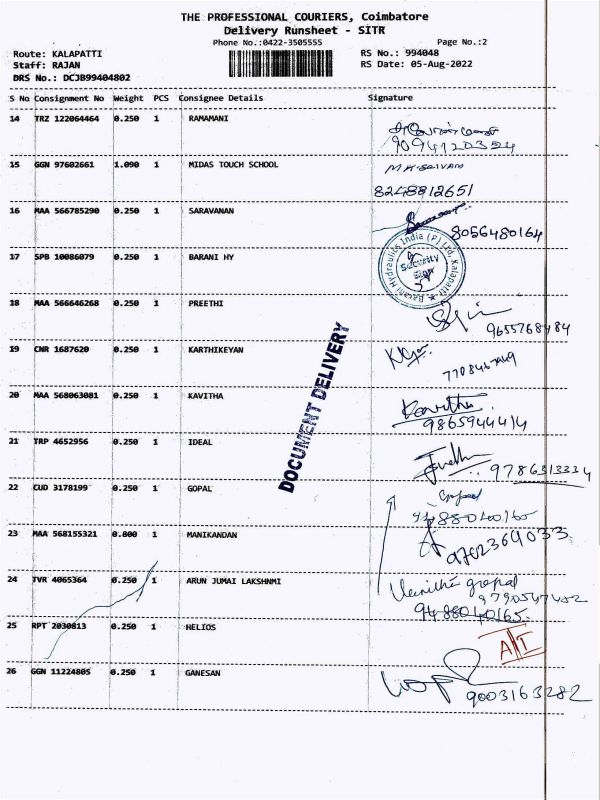 THE PROFESSIONAL COURIERS, Coimbatore
Delivery Runsheet - SITR
Phone No.:0422-3505555 Page No.:2
Route: KALAPATTI RS No.: 994048
Staff: RAJAN RS Date: 05-Aug-2022
DRS No.: DCJB99404802
S No Consignment No Weight PCS Consignee Details Signature
14 TRZ 122064464 0.250 1 RAMAMANI
9094120354
15 GGN 97602661 1.090 1 MIDAS TOUCH SCHOOL
8248812651
16 MAA 566785290 0.250 1 SARAVANAN
8056480164
17 SPB 10086079 0.250 1 BARANI HY
Barani Hydraulics India (P) Ltd, Kalapatti
Security
Sign
18 MAA 566646268 0.250 1 PREETHI
9655768484
19 CNR 1687620 0.250 1 KARTHIKEYAN
20 MAA 568063081 0.250 1 KAVITHA
Kavitha
9865944414
21 TRP 4652956 0.250 1 IDEAL
9786313334
DOCUMENT DELIVERY
22 CUD 3178199 0.250 1 GOPAL
Gopal
9488040165
23 MAA 568155321 0.800 1 MANIKANDAN
24 TVR 4065364 0.250 1 ARUN JUMAI LAKSHNMI
gopal
9488040165
25 RPT 2030813 0.250 1 HELIOS
26 GGN 11224805 0.250 1 GANESAN
9003163282